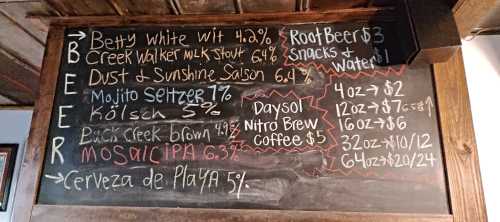 BEER
→ Betty White Wit 4.2%
Creek Walker Milk Stout 6.4%
Dust & Sunshine Saison 6.4%
Mojito Seltzer 7%
Kölsch 5%
Buck Creek Brown 4.9%
MOSAIC IPA 6.3%
→ Cerveza de PlAYA 5%
Root Beer $3
Snacks &
Water $1
Daysol
Nitro Brew
Coffee $5
4oz → $2
12oz → $7
16oz → $6
32oz → $10/12
64oz → $20/24